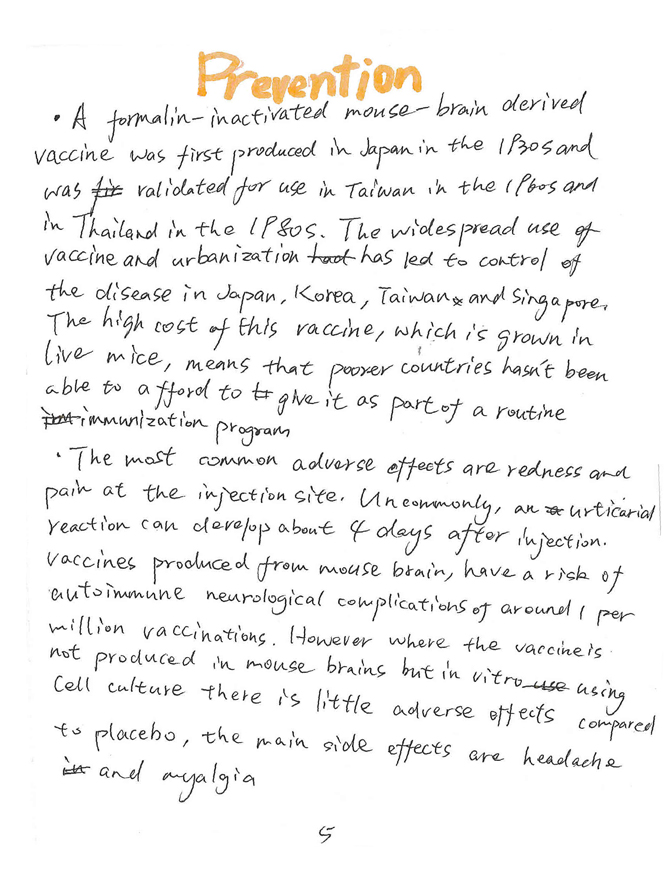 Prevention
• A formalin-inactivated mouse-brain derived
vaccine was first produced in Japan in the 1930s and
was validated for use in Taiwan in the 1960s and
in Thailand in the 1980s. The widespread use of
vaccine and urbanization has led to control of
the disease in Japan, Korea, Taiwan and Singapore.
The high cost of this vaccine, which is grown in
live mice, means that poorer countries hasn't been
able to afford to give it as part of a routine
immunization program
• The most common adverse effects are redness and
pain at the injection site. Uncommonly, an urticarial
reaction can develop about 4 days after injection.
vaccines produced from mouse brain, have a risk of
autoimmune neurological complications of around 1 per
million vaccinations. However where the vaccine is
not produced in mouse brains but in vitro using
Cell culture there is little adverse effects compared
to placebo, the main side effects are headache
and myalgia
5